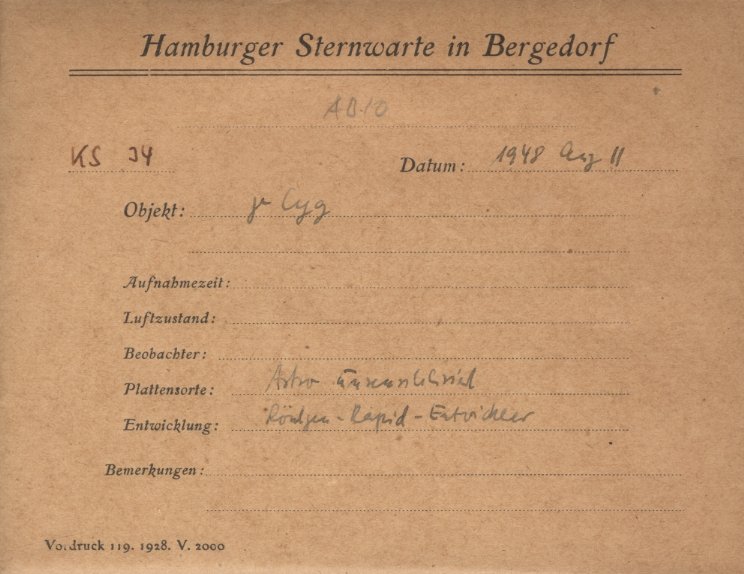 Hamburger Sternwarte in Bergedorf
KS J4 Datum: 1948 Aug 11
Objekt: γ Cyg
Aufnahmezeit:
Luftzustand:
Beobachter:
Plattensorte: Astro
Entwicklung: Röntgen-Rapid-Entwickler
Bemerkungen:
Vordruck 119. 1928. V. 2000